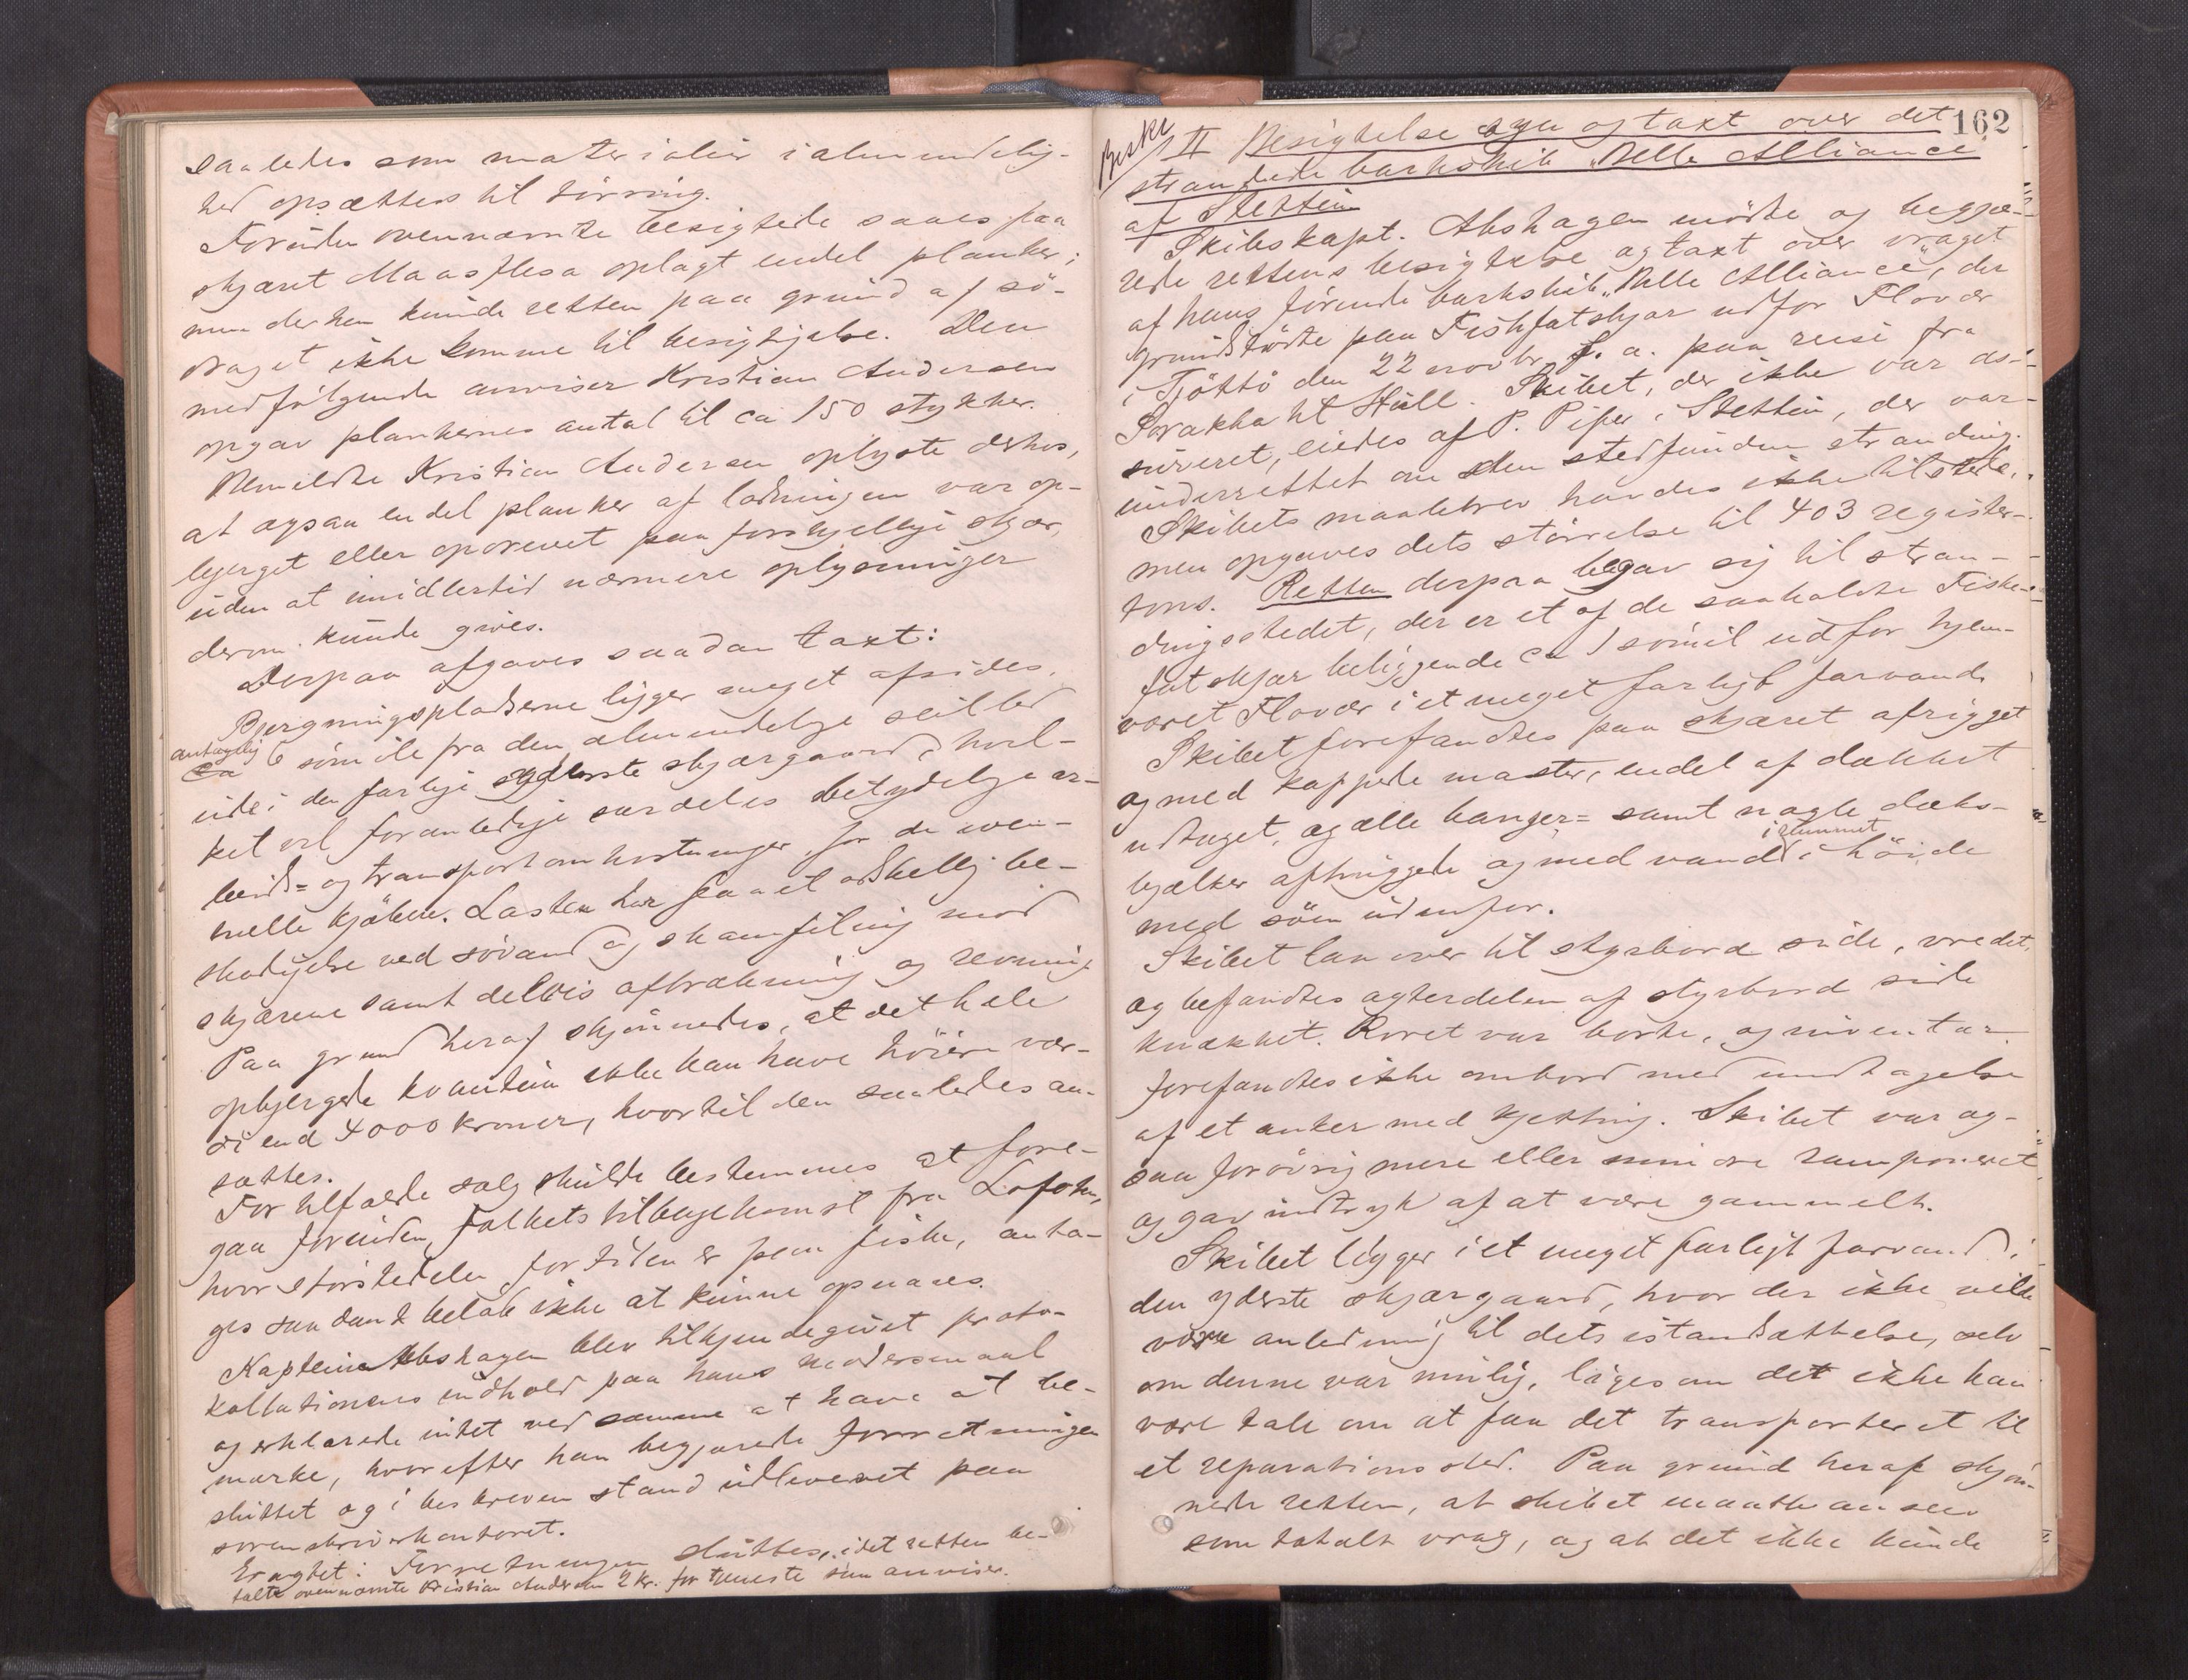 saaledes som materialier i almindelig-
hed opsættes til törring.
Foruden ovennævnte besigtede saaes paa
skjæret Maasflesa oplagt endel planker;
men derhen kunde retten paa grund af sö-
draget ikke komme til besigtigelse. Den
medfölgende anviser Kristian Andersen
opgav plankernes antal til ca 150 stykker.
Bemeldte Kristian Andersen oplyste derhos,
at ogsaa endel planker af ladningen var op-
bjerget eller opdrevet paa forskjellige skjær,
uden at imidlertid nærmere oplysninger
derom kunde gives.
Derpaa afgaves saadan taxt:
Bjergningspladserne ligger meget afsides,
antagelig
ca 6 sömile fra den almindelige seilled
ude i den farlige yderste skjærgaard, hvil-
ket vil foranledige særdeles betydelige ar-
beids= og transportomkostninger for de even-
tuelle kjöbere. Lasten har faaet adskellig be-
skadigelse ved sövand og skamfiling mod
skjærene samt delvis afbrækning og revning
Paa grund heraf skjönnedes, at det hele
opbjergede kvantum ikke kan have höiere vær-
di end 4000 kroner, hvortil den saaledes an-
sattes.
For tilfælde salg skulde bestemmes at fore-
gaa foruden folkets tilbagekomst fra Lofoten,
hvor störstedelen for tiden er paa fiske, anta-
ges saadant belöb ikke at kunne opnaaes.
Kaptein Abshagen blev tilkjendegivet proto-
kollationens indhold paa hans modersmaal
og erklærede intet ved samme at have at be-
mærke, hvorefter han begjærede forretningen
sluttet og i beskreven stand udleveret paa
sorenskriverkontoret.
Eragtet: Forretningen sluttes, idet retten be-
talte ovennævnte Kristian Andersen 2 kr. for tjeneste som anviser.
162
Beskr
II Besigtelse og taxt over det
strandede barkskib "Belle Alliance"
af Stettin
Skibskapt. Abshagen mödte og begjæ-
rede rettens besigtelse og taxt over vraget
af hans förende barkskib "Belle Alliance", der
grundstödte paa Fiskfatskjær udfor Flovær
i Tjöttö den 22 novbr f. a. paa reise fra
Sorokka til Hull. Skibet, der ikke var as-
sureret, eiedes af P. Piper i Stettin, der var
underrettet om den stedfundne stranding.
Skibets maalebrev havdes ikke tilstede,
men opgaves dets störrelse til 403 register-
tons. Retten derpaa begav sig til stran-
dingsstedet, der er et af de saakaldte Fiske-
fatskjær beliggende ca 1 sömil udfor hjem-
været Flovær i et meget farligt farvand.
Skibet forefandtes paa skjæret afrigget
og med kappede master, endel af dækket
udtaget, og alle hanger= samt nogle dæks-
i rummet
bjælker afhuggede og med vand i höide
med söen udenfor.
Skibet laa over til styrbord side, vredet,
og befandtes agterdelen af styrbord side
knækket. Roret var borte, og inventar
forefandtes ikke ombord med undtagelse
af et anker med kjetting. Skibet var og-
saa forövrig mere eller mindre ramponeret
og gav indtryk af at være gammelt.
Skibet ligger i et meget farligt farvand i
den yderste skjærgaard, hvor der ikke vilde
være anledning til dets istandsættelse, selv
om denne var mulig, ligesom det ikke kan
være tale om at faa det transporteret til
et reparationssted. Paa grund heraf skjön-
nede retten, at skibet maatte ansees
som totalt vrag, og at det ikke kunde